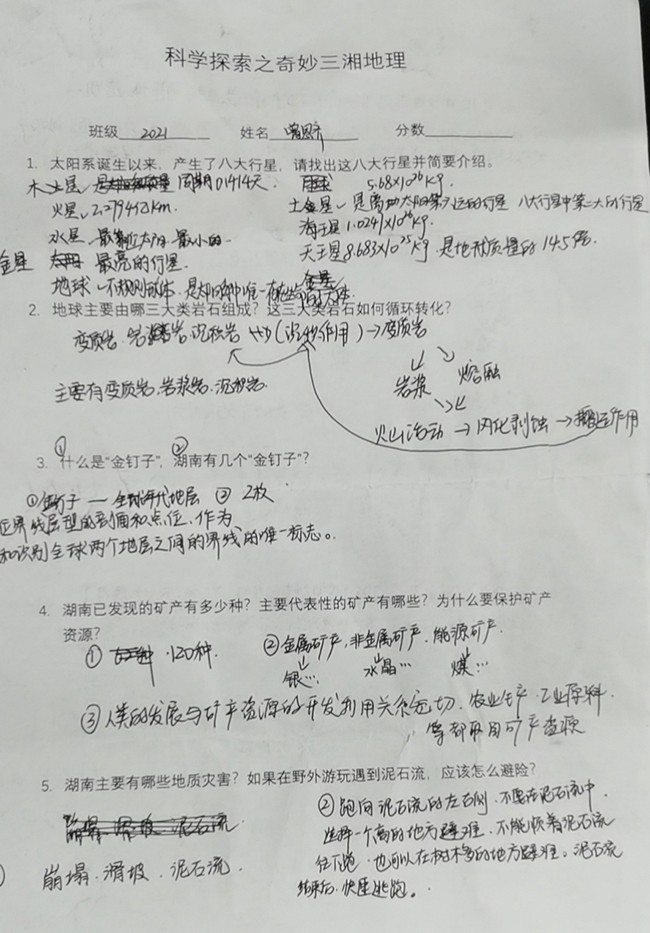 科学探索之奇妙三湘地理
班级 2021 姓名 分数
1. 太阳系诞生以来，产生了八大行星，请找出这八大行星并简要介绍。
木星 周期 0.1414天. 5.68×10²⁶kg.
火星、2.2794亿km. 土星、是离太阳第六远的行星 八大行星中第二大的行星
海王星 1.0241×10²⁶kg.
水星、最靠近太阳 最小的. 天王星 8.683×10²⁵kg 是地球质量的 14.5倍.
金星 最亮的行星.
地球、不规则球体. 是太阳系中唯一存在生命的天体.
2. 地球主要由哪三大类岩石组成？这三大类岩石如何循环转化？
变质岩. 岩浆岩. 沉积岩 (沉积作用)→变质岩
主要有变质岩. 岩浆岩. 沉积岩.
岩浆 熔融
火山活动 → 风化剥蚀 → 搬运作用
3. ①什么是“金钉子”，②湖南有几个“金钉子”？
①金钉子 — 全球年代地层 ② 2枚
界线层型的剖面和点位. 作为
和识别全球两个地层之间的界线的唯一标志。
4. 湖南已发现的矿产有多少种？主要代表性的矿产有哪些？为什么要保护矿产
资源？
① 120种. ②金属矿产, 非金属矿产. 能源矿产.
银… 水晶… 煤…
③人类的发展与矿产资源的开发利用关系密切. 农业生产. 工业原料.
等都取用矿产资源
5. 湖南主要有哪些地质灾害？如果在野外游玩遇到泥石流，应该怎么避险？
崩塌. 滑坡. 泥石流.
②跑向泥石流的左右侧. 不要在泥石流中.
选择一个高的地方避难. 不能顺着泥石流
往下跑. 也可以在树木多的地方避难。泥石流
崩塌. 滑坡. 泥石流.
结束后, 快速逃跑。